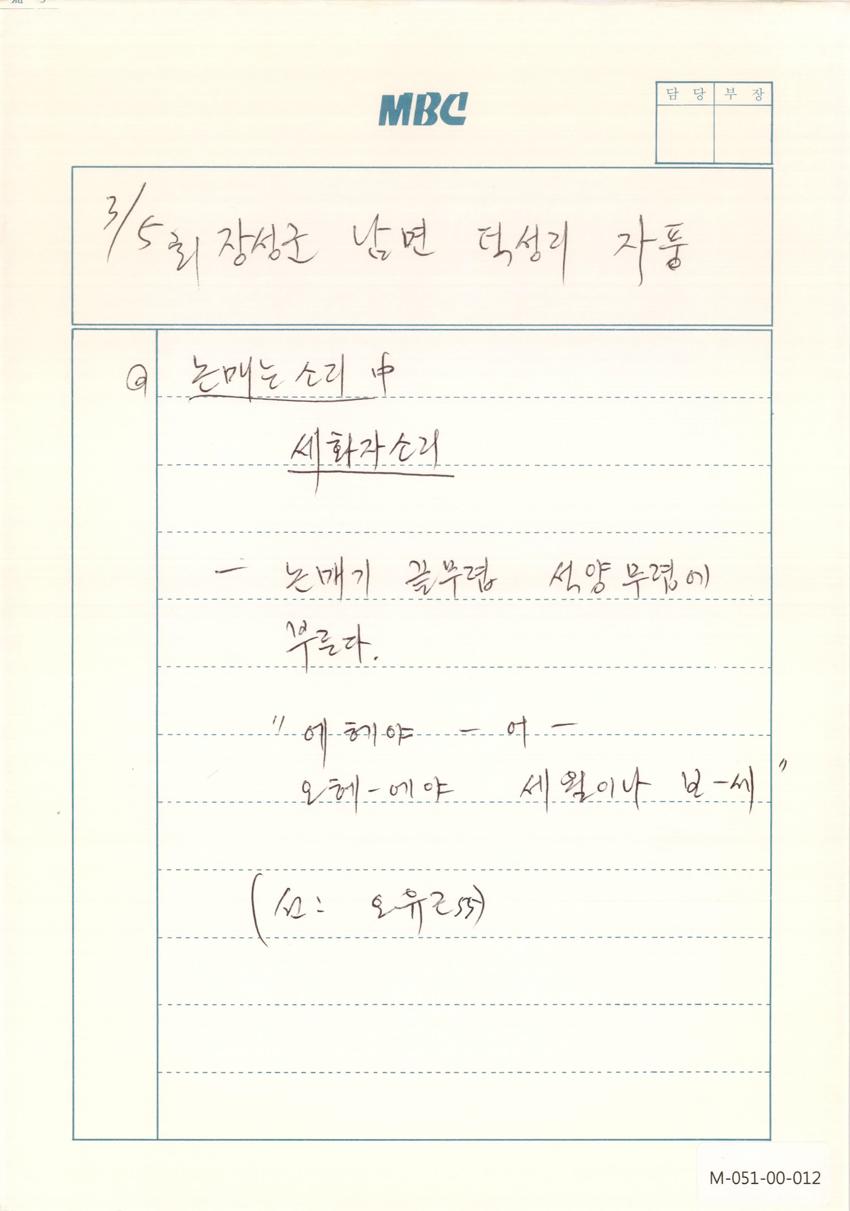 MBC
담 당 부 장
3/5회 장성군 남면 덕성리 자풍
Q 논매는소리 中
세화자소리
— 논매기 끝무렵 석양무렵에
부른다.
"에헤야 — 어 —
오헤-에야 세월이나 보-세"
(선: 오유근55)
M-051-00-012